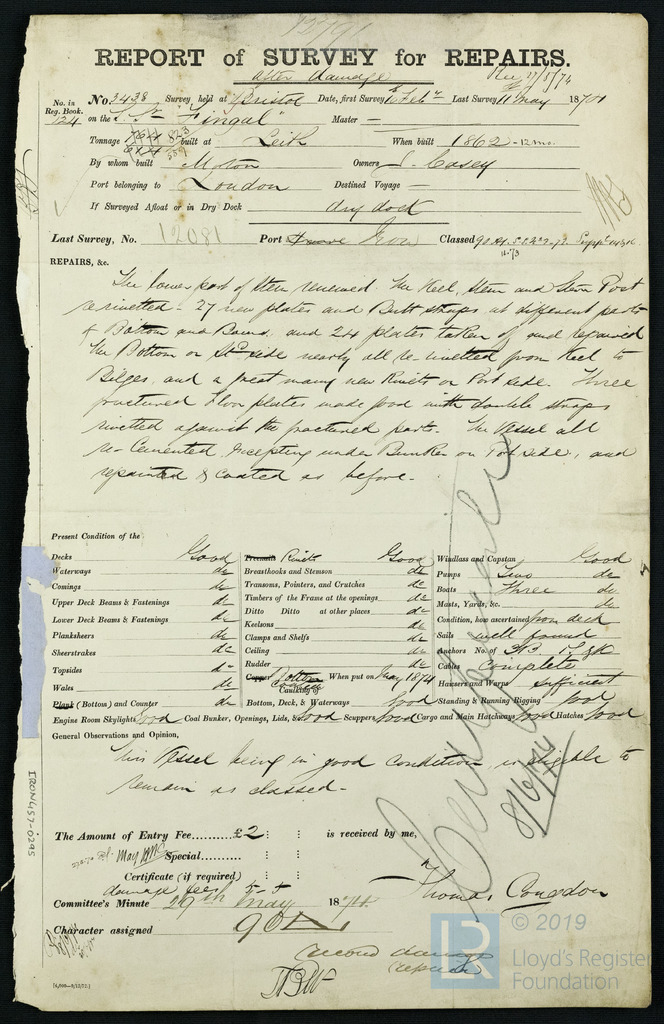 REPORT of SURVEY for REPAIRS.
after damage
Rec 27/5/74
No. in Reg. Book.
124
No 3438 Survey held at Bristol Date, first Survey 10 Feby Last Survey 11 May 1874
on the "Fingal" Master —
Tonnage 823 built at Leith When built 1862 - 12 mo.
By whom built Owners J. Casey
Port belonging to London Destined Voyage —
If Surveyed Afloat or in Dry Dock dry dock
Last Survey, No. 12081 Port Iron Classed 90 A1
11.73
REPAIRS, &c.
The lower part of Stem renewed. The Keel, Stem and Stern Post
rerivetted - 27 new plates and Butt straps at different parts
of Bottom and Bound, and 24 plates taken off and repaired
the Bottom on Stbd side nearly all re-rivetted from Keel to
Bilges, and a great many new Rivets on Port side. Three
fractured Floor plates made good with double straps
rivetted against the fractured parts. The Vessel all
re-Cemented, excepting under Bunker on Port side, and
repainted & coated as before.
Present Condition of the
Decks Good
Waterways do
Comings do
Upper Deck Beams & Fastenings do
Lower Deck Beams & Fastenings do
Planksheers do
Sheerstrakes do
Topsides do
Wales do
Plank (Bottom) and Counter do
Treenails Rivets Good
Breasthooks and Stemson do
Transoms, Pointers, and Crutches do
Timbers of the Frame at the openings do
Ditto Ditto at other places do
Keelsons do
Clamps and Shelfs do
Ceiling do
Rudder do
Copper Bottom Coated When put on May 1874
Caulking of
Bottom, Deck, & Waterways Good
Windlass and Capstan Good
Pumps Two do
Boats Three do
Masts, Yards, &c. do
Condition, how ascertained from deck
Sails well found
Anchors No. of 3 B
Cables Complete
Hawsers and Warps Sufficient
Standing & Running Rigging Good
Engine Room Skylights Good Coal Bunker, Openings, Lids, &c Good Scuppers Good Cargo and Main Hatchways Good Hatches Good
General Observations and Opinion,
This Vessel being in good condition, is eligible to
remain as classed.
8/6/74
The Amount of Entry Fee.......... £2 : : is received by me,
Special.......... : :
Certificate (if required) : :
damage fees 5-5
Thomas Congdon
Committee's Minute 29th May 1874
Character assigned 90 A
record damage
repairs
[4,000—9/12/72.]
IRON457-0295
© 2019
LR
Lloyd's Register
Foundation